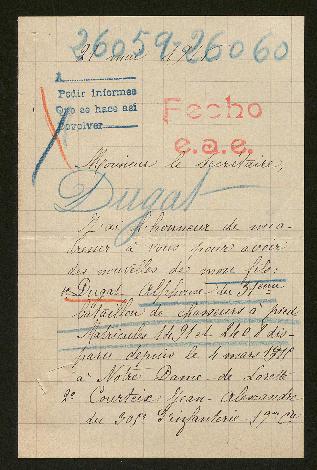 26059-26060
A
Pedir informes
Que se hace asi
Devolver
Fecho
e.a.e.
Monsieur le Secretaire,
Dugat
J'ai l'honneur de
à vous pour avoir
des nouvelles de mon fils:
Dugat Alphonse du 31eme
bataillon de chasseurs à pied
Matricules et dis-
paru depuis le 4 mars 1915
à Notre Dame de Lorette
2º Courteix Jean Alexandre
du 301e d'infanterie 19me Cie